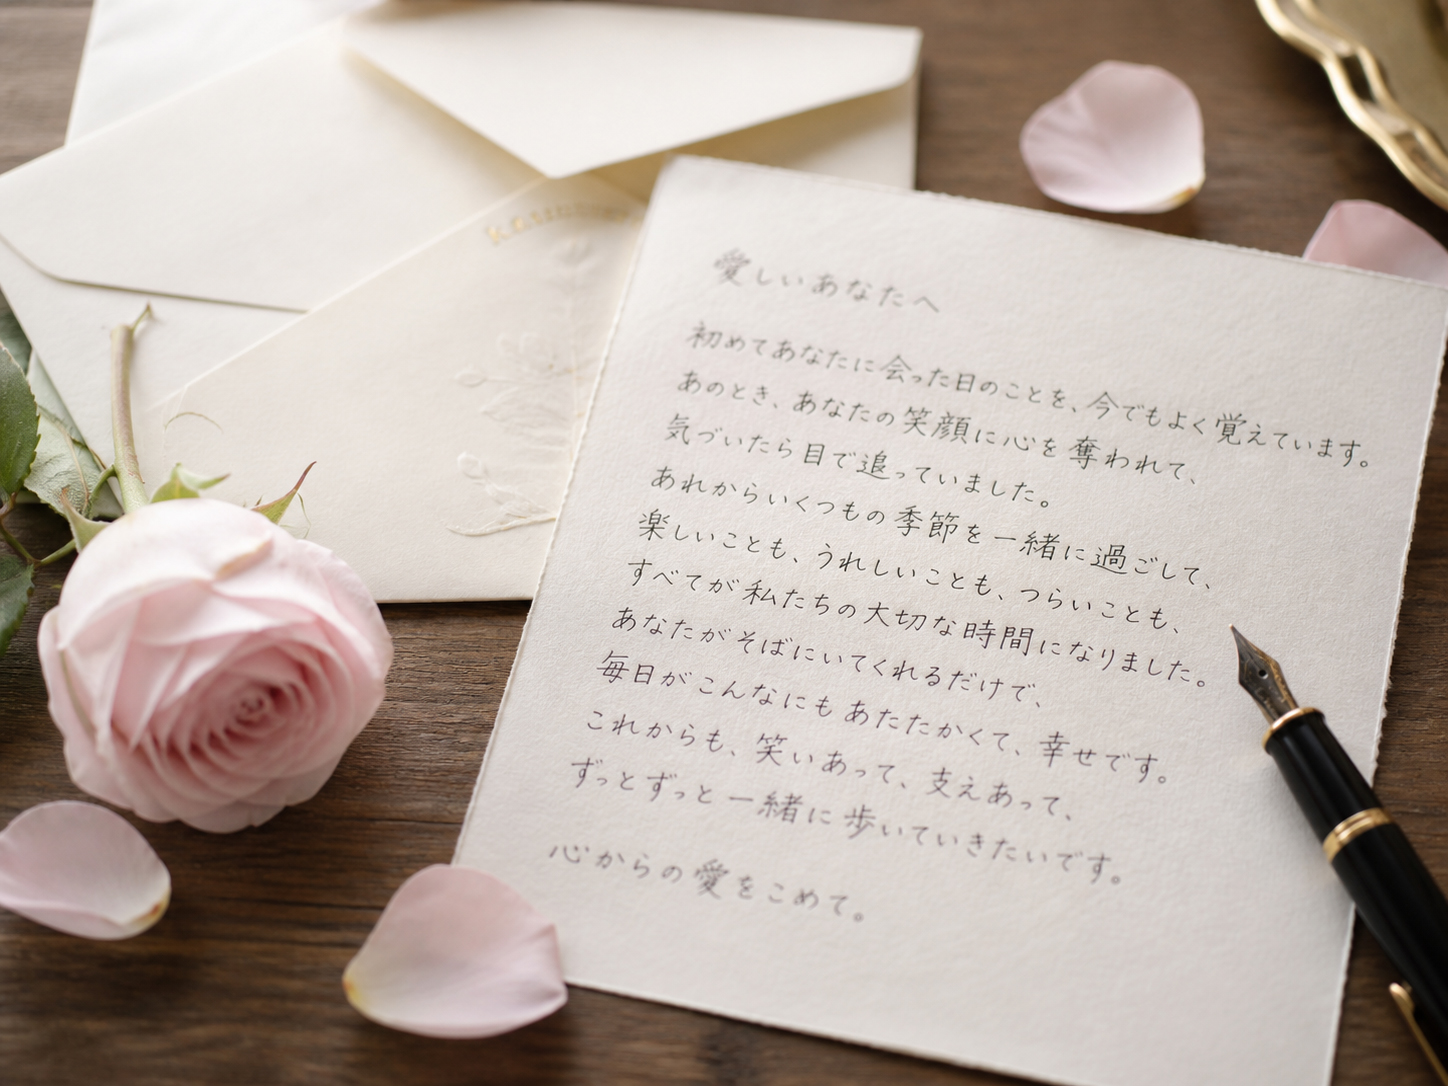 愛しいあなたへ
初めてあなたに会った日のことを、今でもよく覚えています。
あのとき、あなたの笑顔に心を奪われて、
気づいたら目で追っていました。
あれからいくつもの季節を一緒に過ごして、
楽しいことも、うれしいことも、つらいことも、
すべてが私たちの大切な時間になりました。
あなたがそばにいてくれるだけで、
毎日がこんなにもあたたかくて、幸せです。
これからも、笑いあって、支えあって、
ずっとずっと一緒に歩いていきたいです。
心からの愛をこめて。